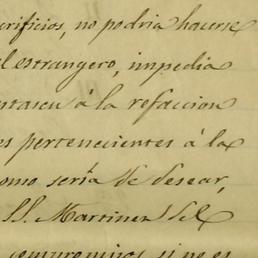 crificios, no podria hacerse
el estrangero, impedia
á la refaccion
es pertenecientes á la
omo seria de desear,
SS. Martinez
si no es